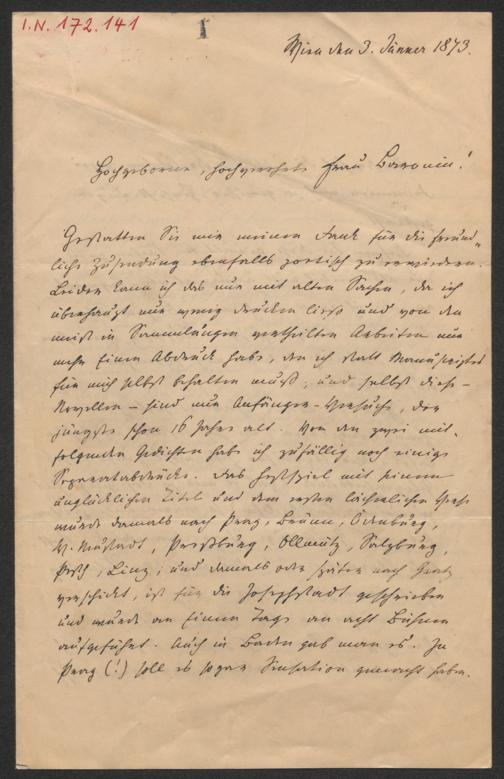 I.N. 172.141
1
Wien den 3. Jänner 1873.
Hochgeborene, hochverehrte Frau Baronin!
Gestatten Sie mir meinen Dank für die freund-
liche Zusendung ebenfalls poetisch zu erwiedern.
Leider kann ich das nur mit alten Sachen, da ich
überhaupt nur wenig drucken ließ und von den
meist in Sammlungen vertheilten Arbeiten nur
mehr Einen Abdruck habe, den ich statt Manuscriptes
für mich selbst behalten muß, und selbst diese –
Novellen – sind nur Anfänger-Versuche, der
jüngste schon 16 Jahre alt. Von den zwei mit-
folgenden Gedichten habe ich zufällig noch einige
Separatabdrücke. Das Festspiel mit seinem
unglücklichen Titel und dem ersten lächerlichen Vers
wurde damals nach Prag, Brünn, Ödenburg,
W. Neustadt, Preßburg, Ollmütz, Salzburg,
Pesth, Linz, und damals oder später nach Gratz
verschickt, ist für die Josephstadt geschrieben
und wurde an Einem Tage an acht Bühnen
aufgeführt. Auch in Baden gab man es. In
Prag (!) soll es sogar Sensation gemacht haben.